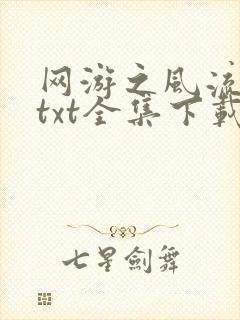 网游之风流
txt全集下载
七星劍舞